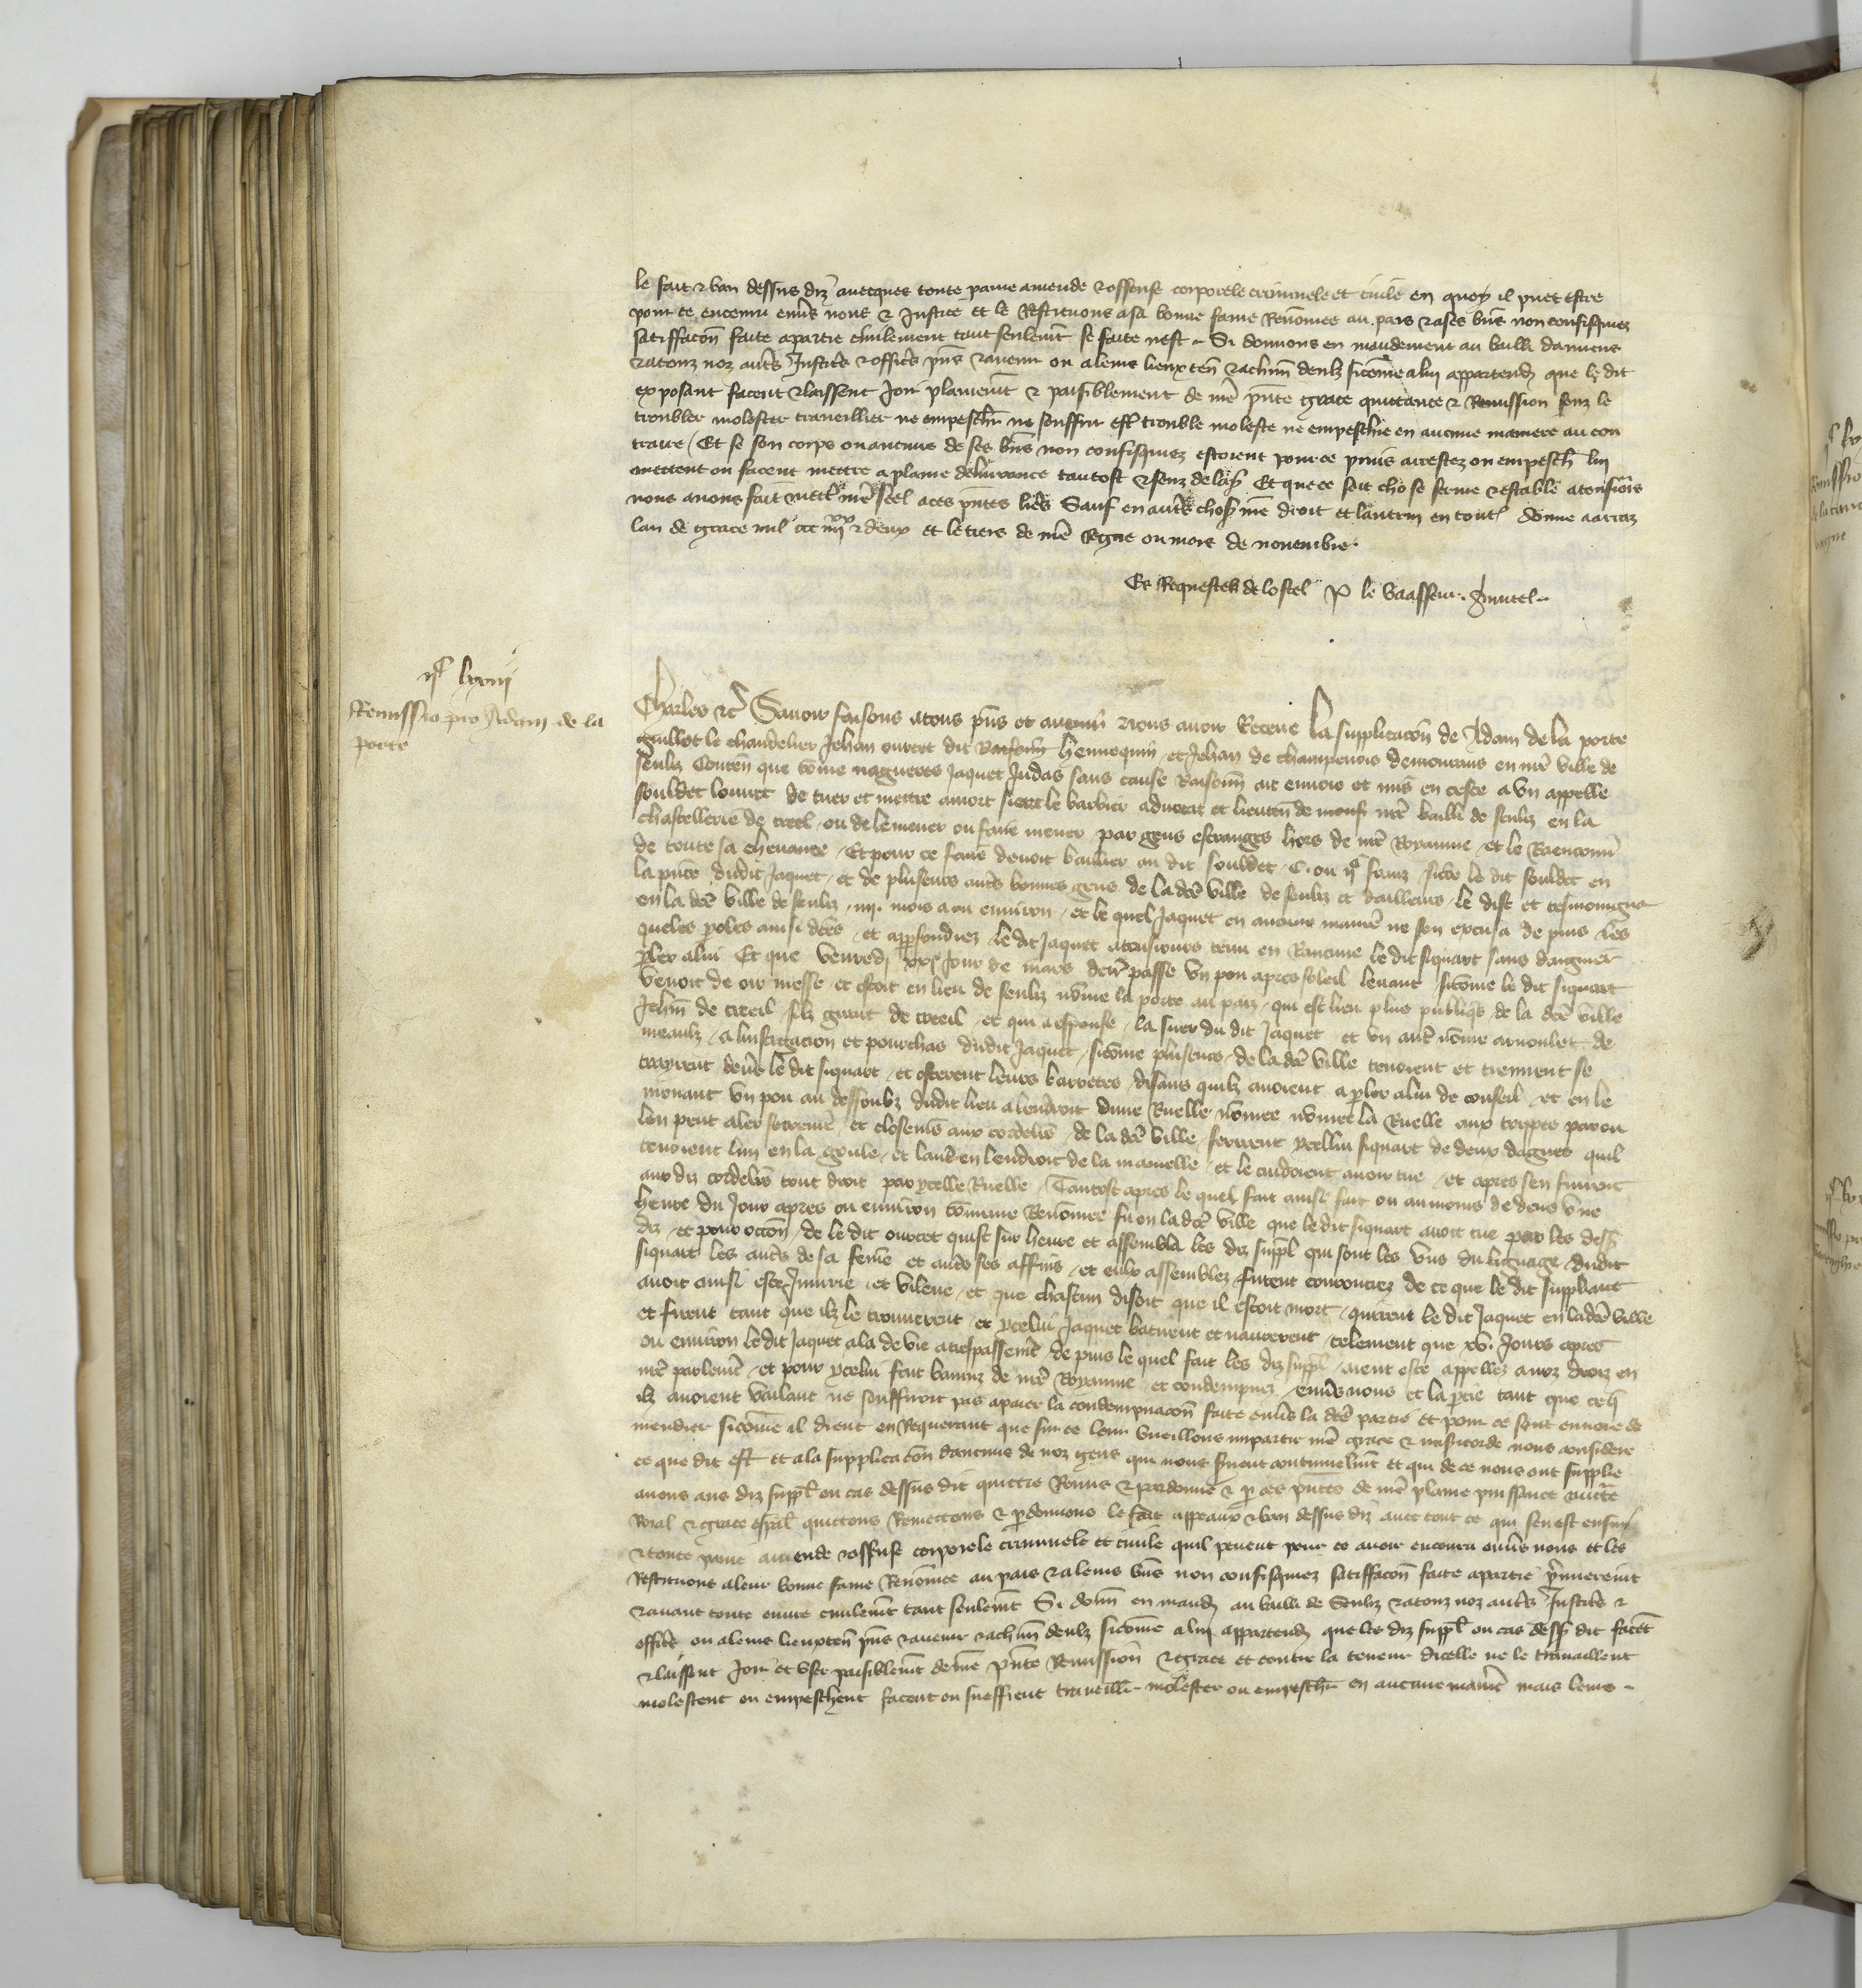 le fait & ban dessus diz avecques toute paine amende & offense corporele criminele et civile en quoy il puet estre
pour ce encouru envers nous & Justice et le Restituons a sa bonne fame Renommee au pais & a ses biens non confisquez
satiffacon faite a partie civilement tant seulement se faite nest . Si donnons en mandement au bailli damiens
& a touz noz autres Justiciers & officiers presens & avenir ou a leurs lieux ten & a chun deulz sicomme a lui appartendra que le dit
exposant facent & laissent Joir plainement & paisiblement de nostre presente grace quittance & Remission senz le
troubler molester traveillier ne empeschier ne souffrir estre trouble moleste ne empeschie en aucune maniere au con
traire / Et se son corps ou aucuns de ses biens non confisquez estoient pour ce prins arrestez ou empeschiez lui
mettent ou facent mettre a plaine delivrance tantost & senz delay Et que ce soit chose ferme & estable a tousjours
nous avons fait mettre nostre seel a ces presentes lettres Sauf en autres choses nostre droit et lautrui en toutes donne a arraz
lan de grace mil ccc iiiixx & deux et le tiers de nostre Regne ou mois de novembre .
Es Requestes de lostel P le vasseur .
iic lxxiii
Remissio pro Adam de la
porte
Charles &c Savoir faisons a tous presens et avenir Nous avoir Receue la supplicacon de Adam de la porte
guillot le chandelier Jehan ourcet dit hennequin et Jehan de champenois demourans en nostre ville de
senliz Conten que comme nagueres Jaquet Judas sans cause Raisonnable ait envoie et mis en cesse a un appelle
souldet louvet de tuer et mettre a mort siquart le barbier advocat et lieuten de nostre bailli de senliz en la
chastellerie de creel / ou de lemener ou faire mener par gens estranges hors de nostre Royaume / et le Raenconner
de toute sa chevance / Et pour ce faire devoit baillier au dit souldet . C . ou iic frans / sicomme le dit souldet en
la presence dudit Jaquet / et de pluseurs autres bonnes gens de la dicte ville de senliz et dailleurs / le dist et tesmoingna
en la dicte ville de senliz . iiii . mois a ou environ / et le quel Jaquet en aucune maniere ne son excusa depuis les
queles paroles ainsi dictes / et apparfondies / le dit Jaquet a tousjours tenu en Rancune le dit siquart sans daigner
parler a lui Et que venredi xxie Jour de mars derrein passe un pou apres soleil levant / sicomme le dit siquart
venoit de oir messe / et estoit en lieu de senliz nomme la porte au pain / qui est lieu plus publique de la dicte ville
Jehan de creeil / filz girart de creeil / et qui a espouse / la suer du dit Jaquet et un autre nomme arnoulet de
meaulx / a linstigacion et pourchas dudit Jaquet / sicomme pluseurs / de la dicte ville tenoient et tiennent se
trayrent devers le dit siquart / et osterent leurs barretes / disans quilz avoient a parler a lui de conseil / et en le
menant un pou au dessoubz dudit lieu a lendroit dune Ruelle nommee nommee la Ruelle aux trippes par ou
len peut aler secretement et closement aux cordeliers / de la dicte ville / ferirent ycellui siquart de deux dagues quil
tenoient lun en la goule / et lautre en lendroit de la mamelle / et le cuidoient avoir tue / et apres sen fuirent
aux diz cordeliers tout droit par ycelle Ruelle / Tantost apres le quel fait ainsi fait ou au moins dedens une
heure du Jour apres ou environ commune Renommee fu en la dicte ville que le dit siquart avoit tue par les dessus
diz / et pour occon / de le dit ourcet quist sur heure et assembla les diz suppl qui sont les uns du lignage dudit
siquart les autres de sa femme et autres ses affins / et eulx assemblez furent courouciez de ce que le dit suppliant
avoit ainsi este Injurie / et vilene / et que chascun disoit que il estoit mort / quirent le dit Jaquet en la dicte ville
et firent tant que ilz le trouverent / et ycelui Jaquet batirent et navrerent telement que xv . Jours apres
ou environ le dit Jaquet ala de vie a trespassement / depuis le quel fait les diz suppl / aient este appellez a noz droiz en
nostre parlement / et pour ycelui fait banniz de nostre Royaume et condempnez / envers nous et la partie tant que ce quilz
ilz avoient vailant ne souffiroit pas a paier la condempnacon faite envers la dicte partie et pour ce sont en voie de
mendier sicomme il dient en Requerant que sur ce leur vueillons impartir nostre grace & misericorde nous considere
ce que dit est et a la supplicacon daucuns de noz gens qui nous servent continuelment et qui de ce nous ont supplie
avons aus diz suppl ou cas dessus dit quittie Remis & pardonne & par ces presentes de nostre plaine puissance auctorite
Roial & grace especial quittons Remettons & pardonnons le fait appeaux & ban dessus diz avec tout ce qui sen est ensui
& toute paine amende & offense corporele criminele et civile quil pevent pour ce avoir encouru envers nous et les
Restituons a leur bonne fame Renommee au pais & a leurs biens non confisquez satiffacon faite a partie premierement
& avant toute euvre civilement tant seulement Si donn en mand au bailli de Senliz & a touz noz autres Justiciers &
officiers ou a leurs lieuxten presens & avenir & a chun deulz sicomme a lui appartendra que les diz suppl ou cas dessus dit facent
& laissent Joir et user paisiblement de nostre presente Remission & grace et contre la teneur dicelle ne le travaillent
molestent ou empeschent facent ou sueffrent traveillier molester ou empeschier en aucune maniere mais leurs